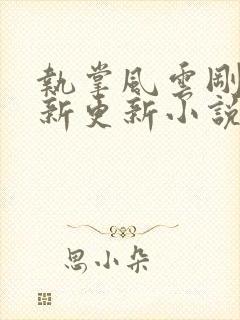 執掌風雲剛
新更新小說
思小朵